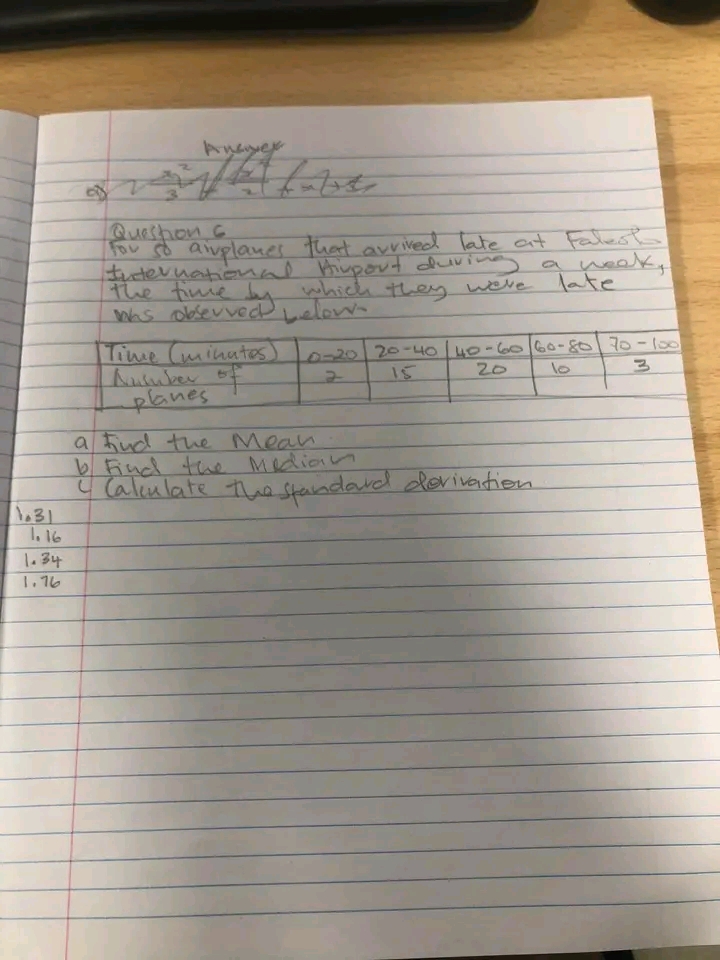 Answer
a)
Question 6
For 50 airplanes that arrived late at Faleol
International Airport during a week,
the time by which they were late
was observed below
Time (minutes) 0-20 20-40 40-60 60-80 70-100
Number of planes 2 15 20 10 3
a Find the Mean
b Find the Median
c Calculate the standard derivation
1.31
1.16
1.34
1.76